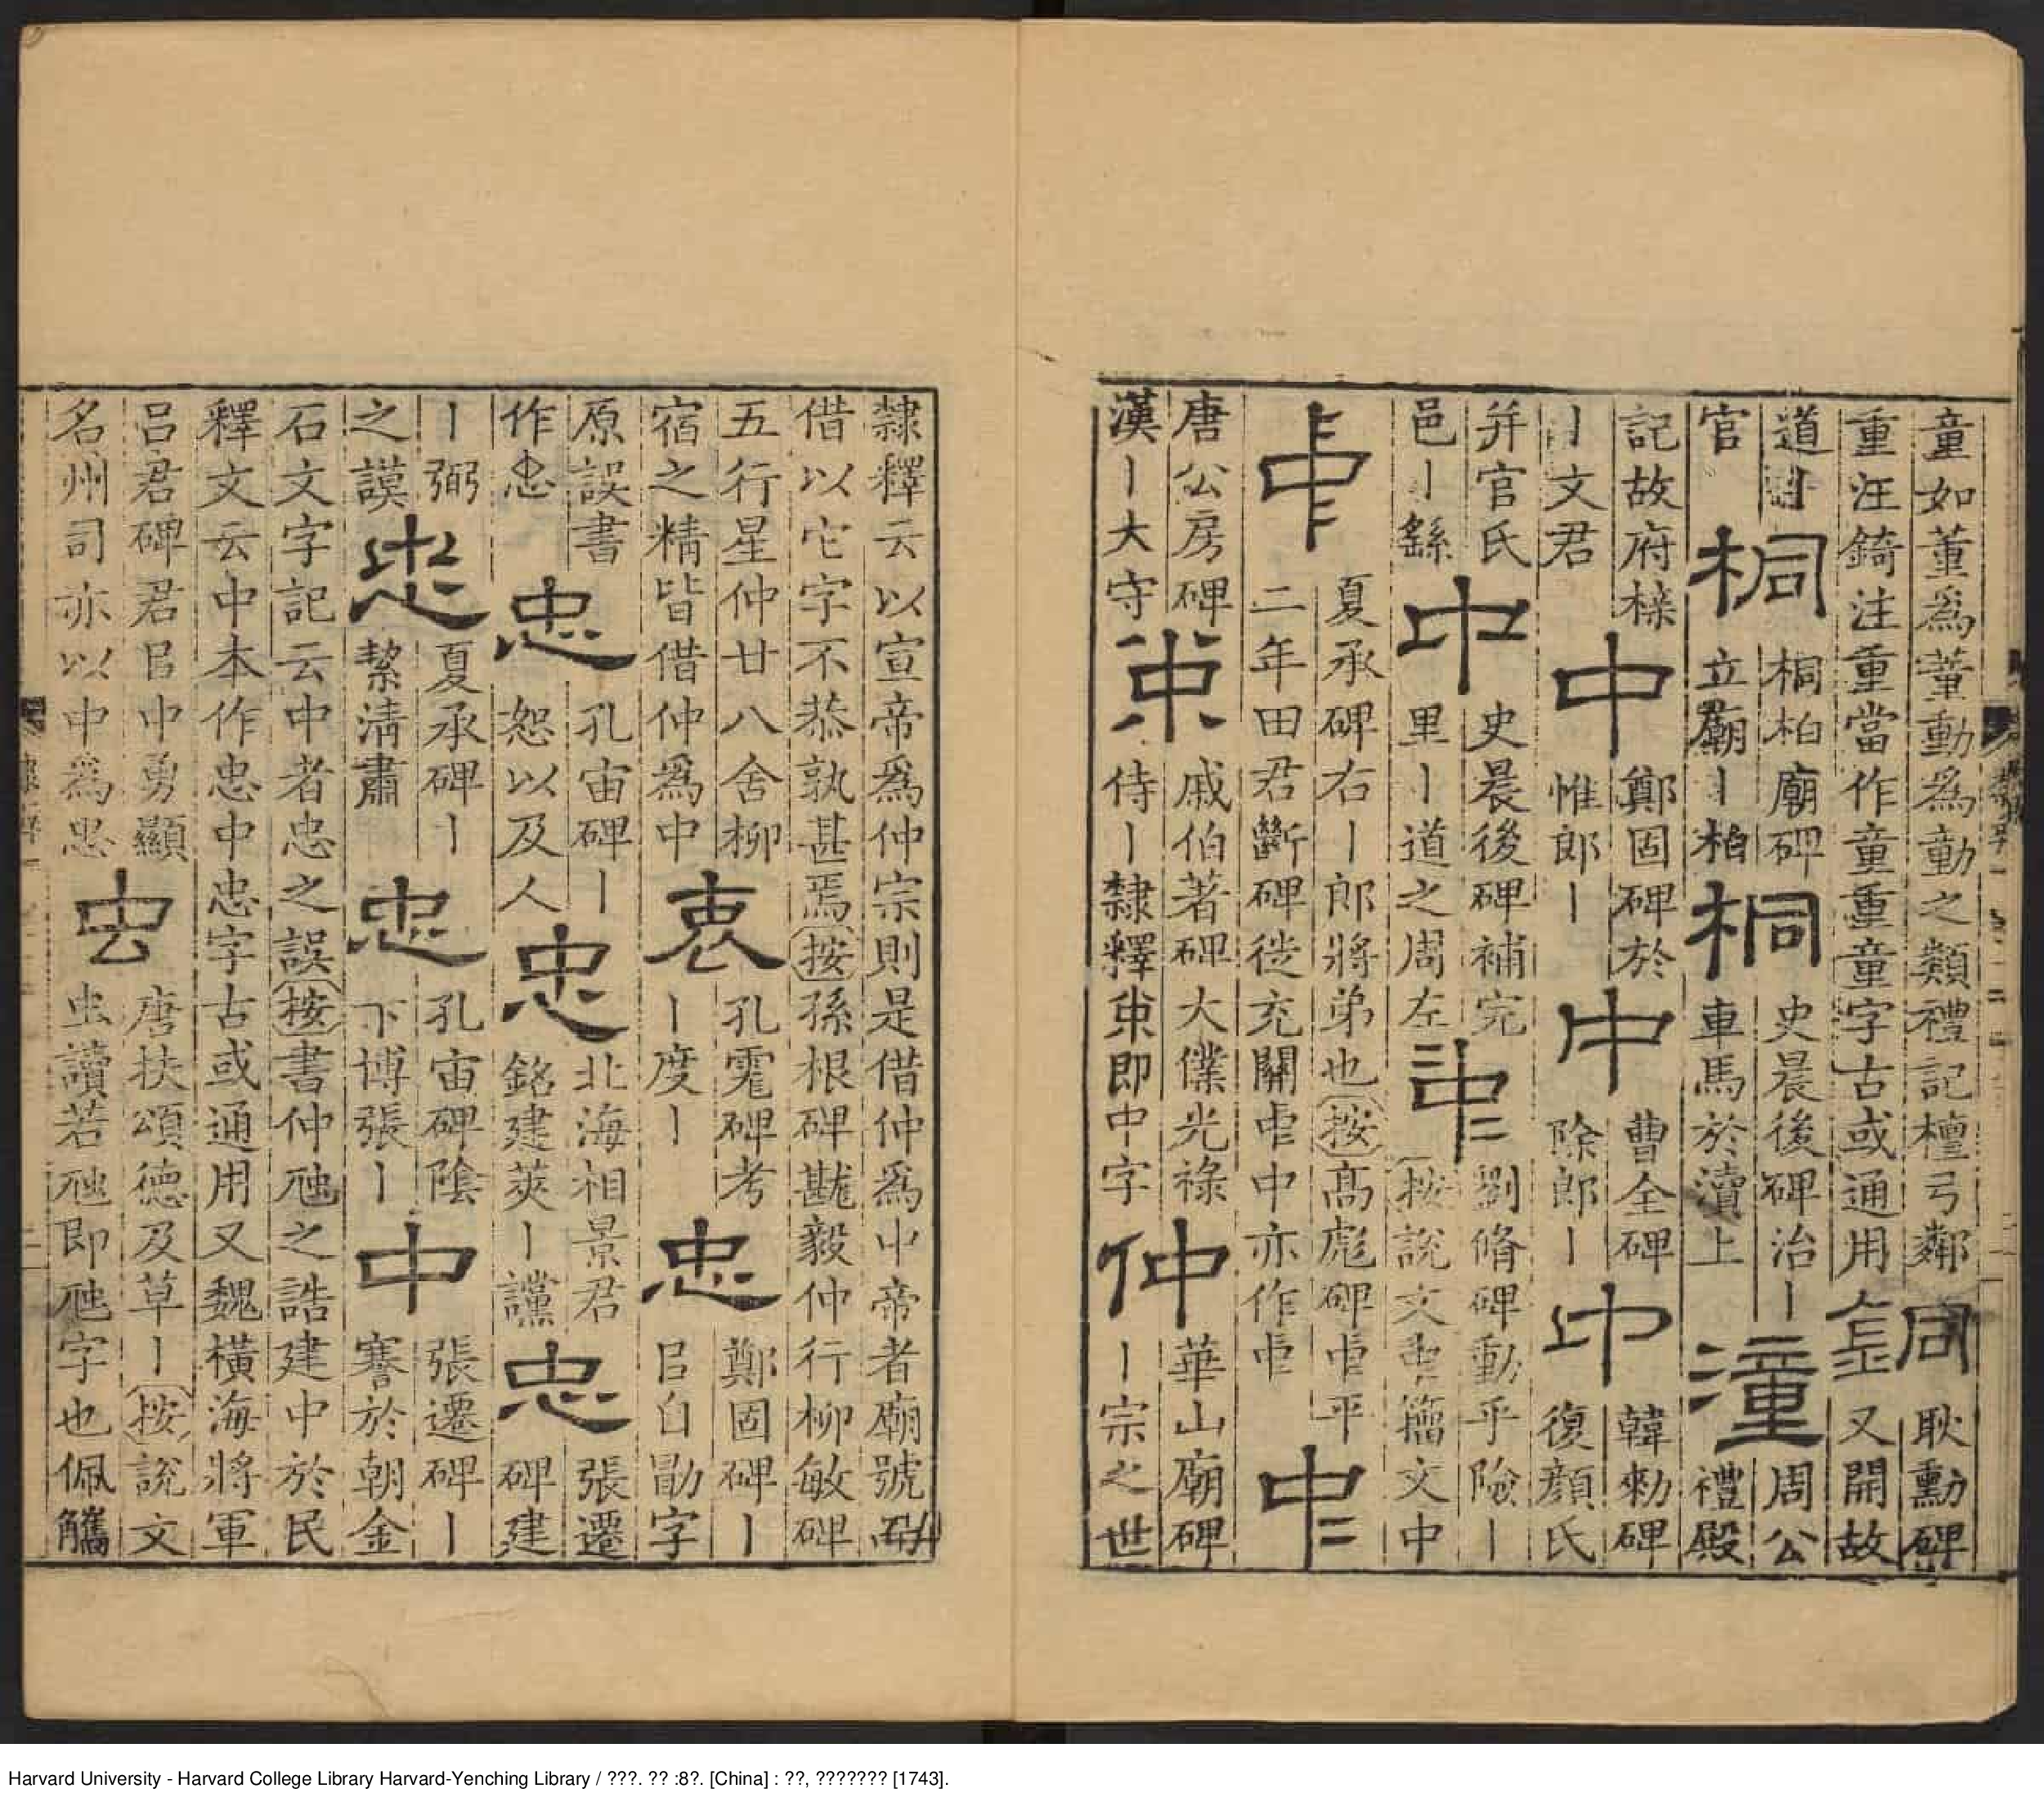 童如董爲董動爲勭之類禮記檀弓鄰
重汪錡注重當作童重童字古或通用
銅
耿勳碑
又開故
道丨
官
桐
桐柏廟碑
立廟丨柏
桐
史晨後碑治丨
車馬於瀆上
潼
周公
禮殿
記故府梓
丨文君
中
鄭固碑於
惟郎丨
中
曹全碑
除郎丨
中
韓勑碑
復顏氏
并官氏
邑丨繇
中
史晨後碑補完
里丨道之周左
𠁩
劉脩碑動乎險丨
按說文𠁩籒文中
𠁧
夏承碑右丨郎將弟也按高彪碑𠁧平
二年田君斷碑徙充關𠁧中亦作𠁧
中
唐公房碑
漢丨大守
𠁦
戚伯著碑大僕光祿
侍丨隸釋𠁦即中字
仲
華山廟碑
丨宗之世
隸釋云以宣帝爲仲宗則是借仲爲中帝者廟號而
借以它字不恭孰甚焉按孫根碑戡毅仲行柳敏碑
五行星仲廿八舍柳
宿之精皆借仲爲中
衷
孔霮碑考
丨度丨
忠
鄭固碑丨
㠯自勖字
原誤書
作忠
忠
孔宙碑丨
恕以及人
忠
北海相景君
銘建莢丨讜
忠
張遷
碑建
丨弼
之謨
忠
夏承碑丨
絜淸肅
忠
孔宙碑陰
下博張丨
中
張遷碑丨
謇於朝金
石文字記云中者忠之誤按書仲虺之誥建中於民
釋文云中本作忠中忠字古或通用又魏橫海將軍
呂君碑君㠯中勇顯
名州司亦以中爲忠
虫
唐扶頌德及草丨按說文
虫讀若虺即虺字也佩觿
Harvard University - Harvard College Library Harvard-Yenching Library / ???. ?? :8?. [China] : ??, ??????? [1743].